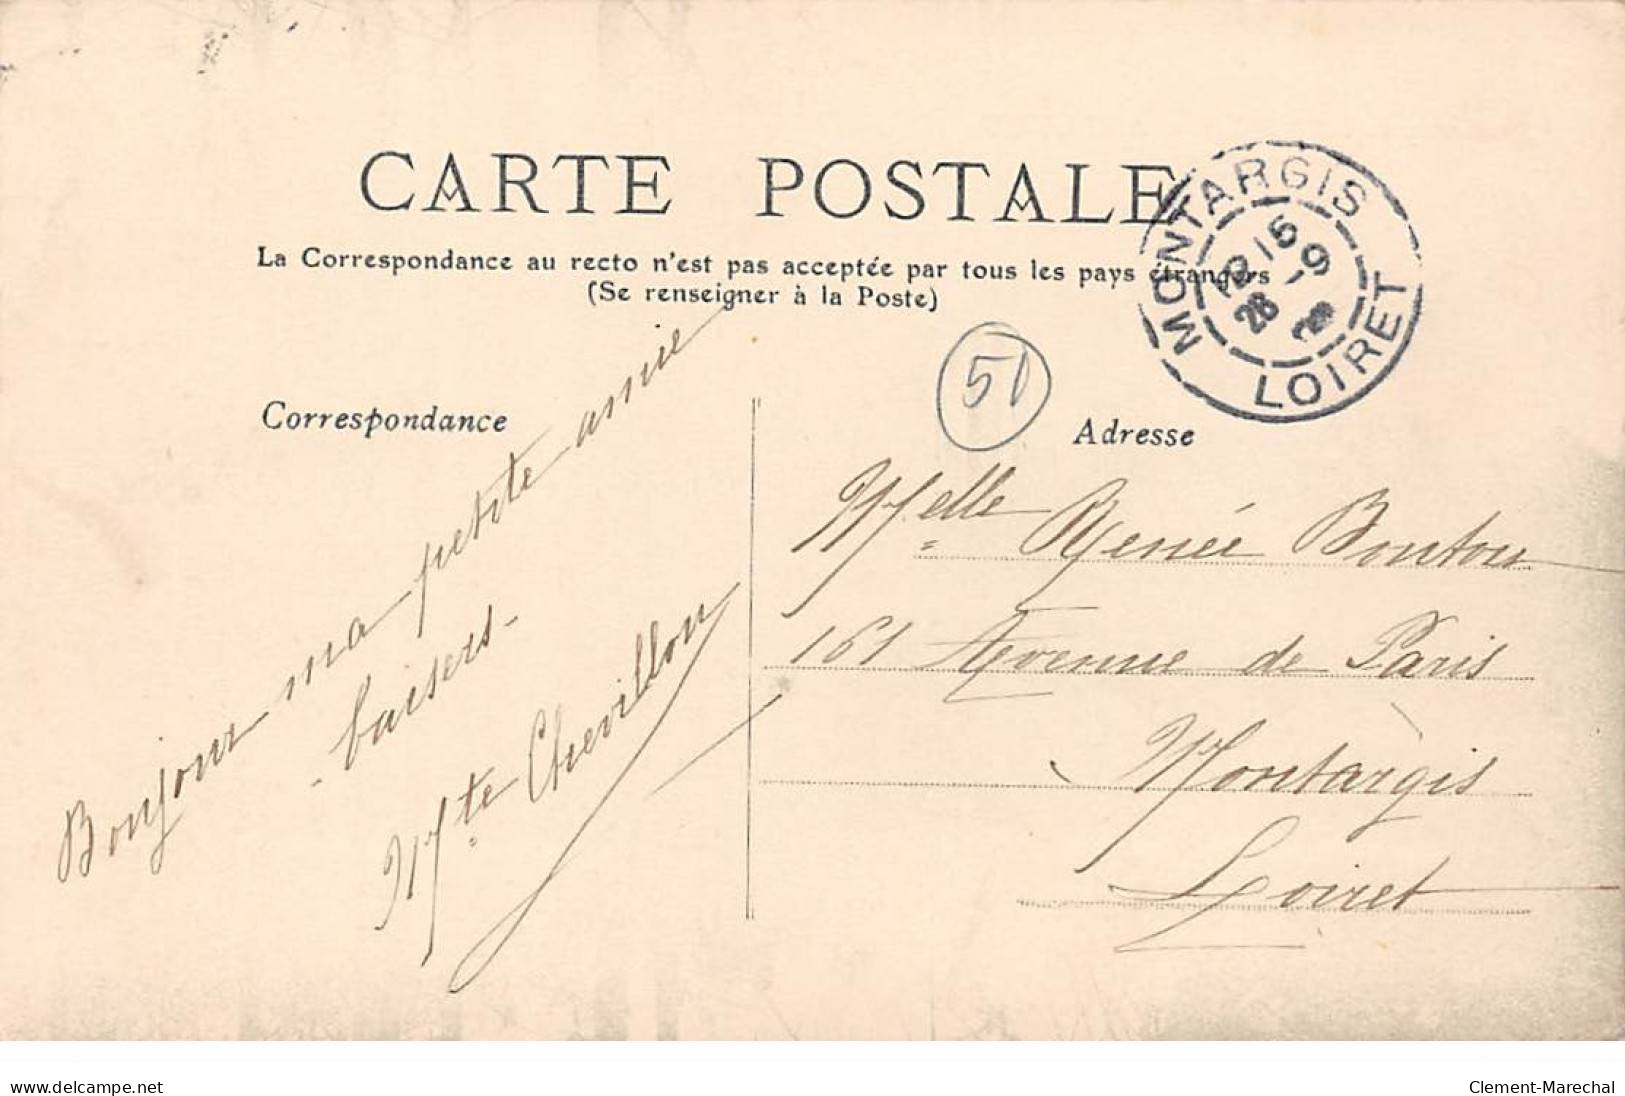 CARTE POSTALE
La Correspondance au recto n'est pas acceptée par tous les pays étrangers
(Se renseigner à la Poste)
MONTARGIS
12 15
28 - 9
LOIRET
51
Correspondance
Adresse
Bonjour ma petite amie
- baisers -
Mte Chevillon
Melle Renée Bouton
161 Avenue de Paris
Montargis
Loiret
www.delcampe.net
Clement-Marechal